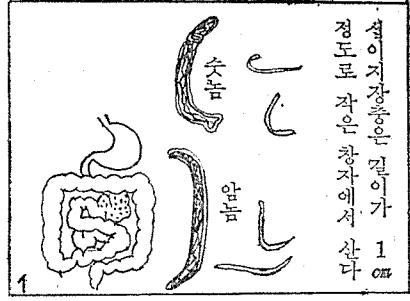 십이지장충은 길이가 1cm
정도로 작은 창자에서 산다
숫놈
암놈
1